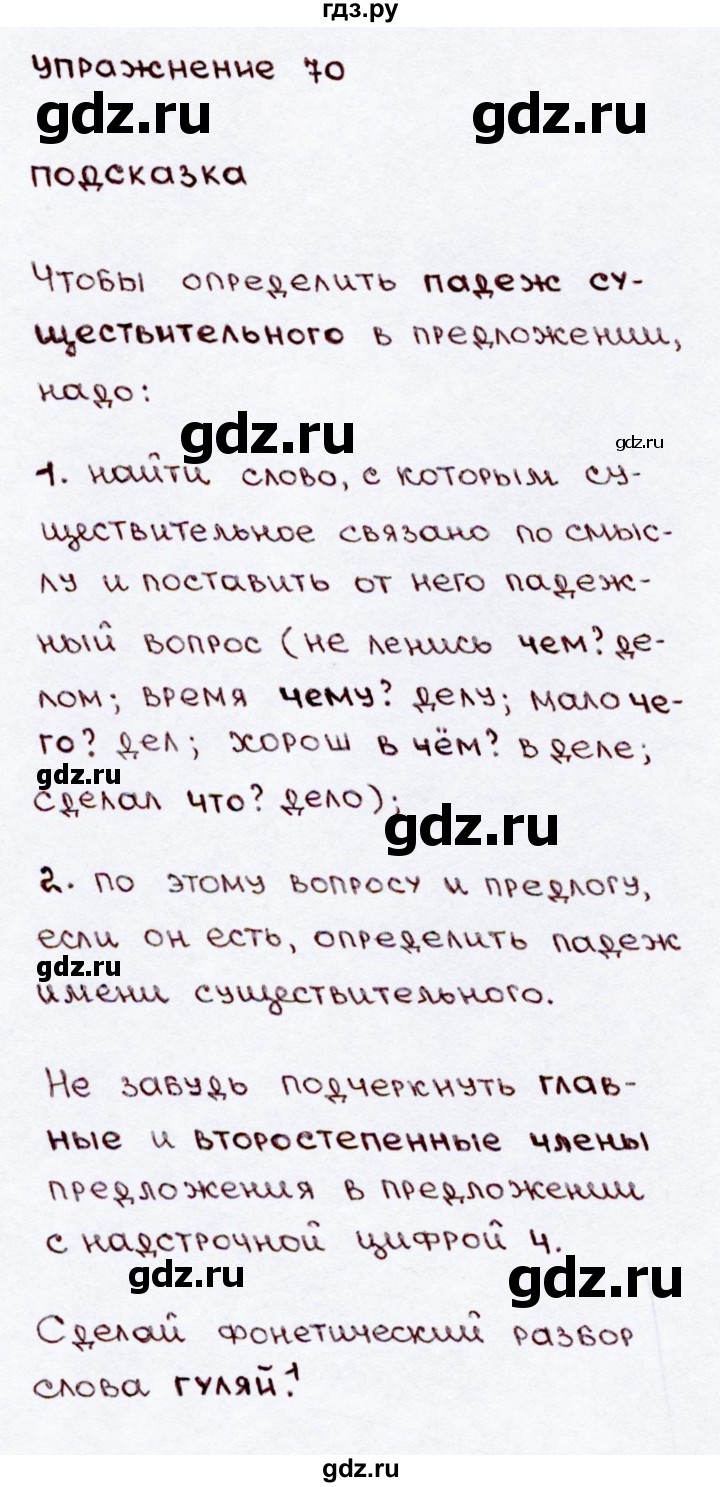 гдз.ру
упражнение 70
gdz.ru
gdz.ru
подсказка
Чтобы определить падеж су-
ществительного в предложении,
надо:
gdz.ru
gdz.ru
1. найти слово, с которым су-
ществительное связано по смыс-
лу и поставить от него падеж-
ный вопрос (не ленись чем? де-
лом; время чему? делу; мало че-
го? дел; хорош в чём? в деле;
gdz.ru
сделал что? дело);
gdz.ru
2. по этому вопросу и предлогу,
если он есть, определить падеж
gdz.ru
имени существительного.
Не забудь подчеркнуть глав-
ные и второстепенные члены
предложения в предложении
с надстрочной цифрой 4.
gdz.ru
gdz.ru
Сделай фонетический разбор
слова гуляй.¹
gdz.ru